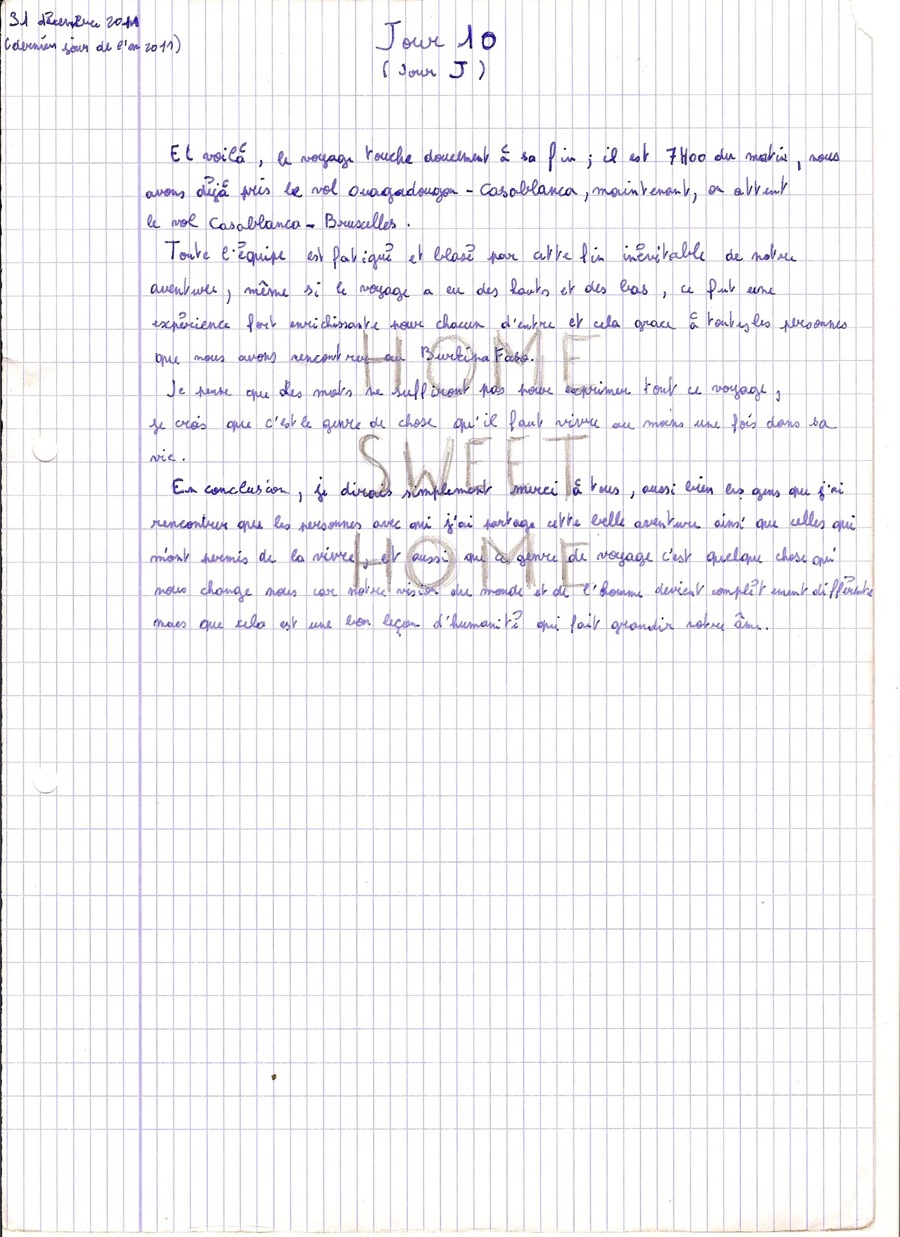 31 décembre 2011
(dernier jour de l'an 2011)
Jour 10
(Jour J)
Et voilà, le voyage touche doucement à sa fin ; il est 7H00 du matin, nous
avons déjà pris le vol Ouagadougou - Casablanca, maintenant, on attent
le vol Casablanca - Bruxelles.
Toute l'équipe est fatigué et blasé par cette fin inévitable de notre
aventure, même si le voyage a eu des hauts et des bas, ce fut une
expérience fort enrichissante pour chacun d'entre et cela grace à toutes les personnes
que nous avons rencontrer au Burkina Faso.
HOME
Je pense que des mots ne suffiront pas pour exprimer tout ce voyage,
je crois que c'est le genre de chose qu'il faut vivre au moins une fois dans sa
vie.
SWEET
En conclusion, je dirais simplement merci à tous, aussi bien les gens que j'ai
rencontrer que les personnes avec qui j'ai partage cette belle aventure ainsi que celles qui
m'ont permis de la vivre, et aussi que ce genre de voyage c'est quelque chose qui
HOME
nous change nous car notre vision du monde et de l'homme devient complètement différente
mais que cela est une bon leçon d'humanité qui fait grandir notre âme.